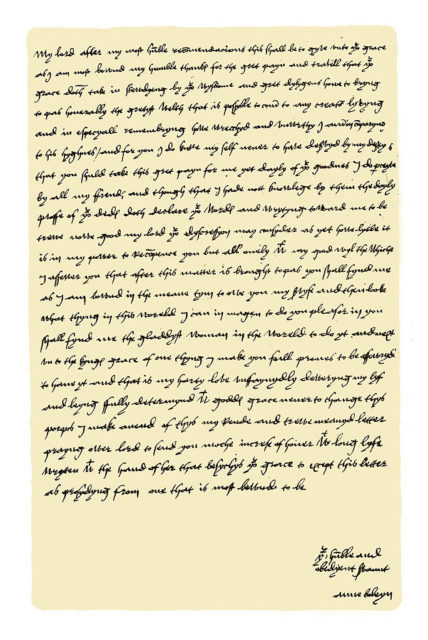 My lord after my most humble recomendacions this shall be to gyve unto yr grace
as I am most bownd my humble thanks for the gret payn and travell that yr
grace doth take in steudyeng by yr wysdome and gret dylygens how to bryng
to pas honerably the gretyst welth that is possyble to com to any creator lyvyng
and in especyall remembryng how wrecchyd and unworthy I am in comparyng
to his hyghnes / and for you I do know my self never to have deservyd by my
that you shuld take this gret payn for me yet dayly of yr goodnes I do perceyve
by all my frends and though that I hade not knowlege by them the dayly
proffe of yr deds doth declare yr words and wrytyng toward me to be
trewe nowe good my lord yr dyscression may consyder as yet how lytle it
is in my power to recompence you but all onely wt my good wyl the whiche
I assewer you that after this matter is brought to pas you shall fynd me
as I am bownd in the meane tym to owe you my servyse and then looke
what thyng in this woreld I can inmagen to do you pleasor in you
shall fynd me the gladdyst woman in the woreld to do yt and next
unto the kyngs grace of one thyng I make you full promes to be assewryd
to have yt and that is my harty love unfaynydly dewering my lyf
and beyng fully determynd wt godds grace never to change thys
porpos I make anend of thys my reude and trewe meanyd letter
prayng ower lord to send you moche increse of honer wt long lyfe
wrytten wt the hand of her that besechys yr grace to except this letter
as prosydyng from one that is most bownd to be
yr humble and
obedyent servant
anne boleyn